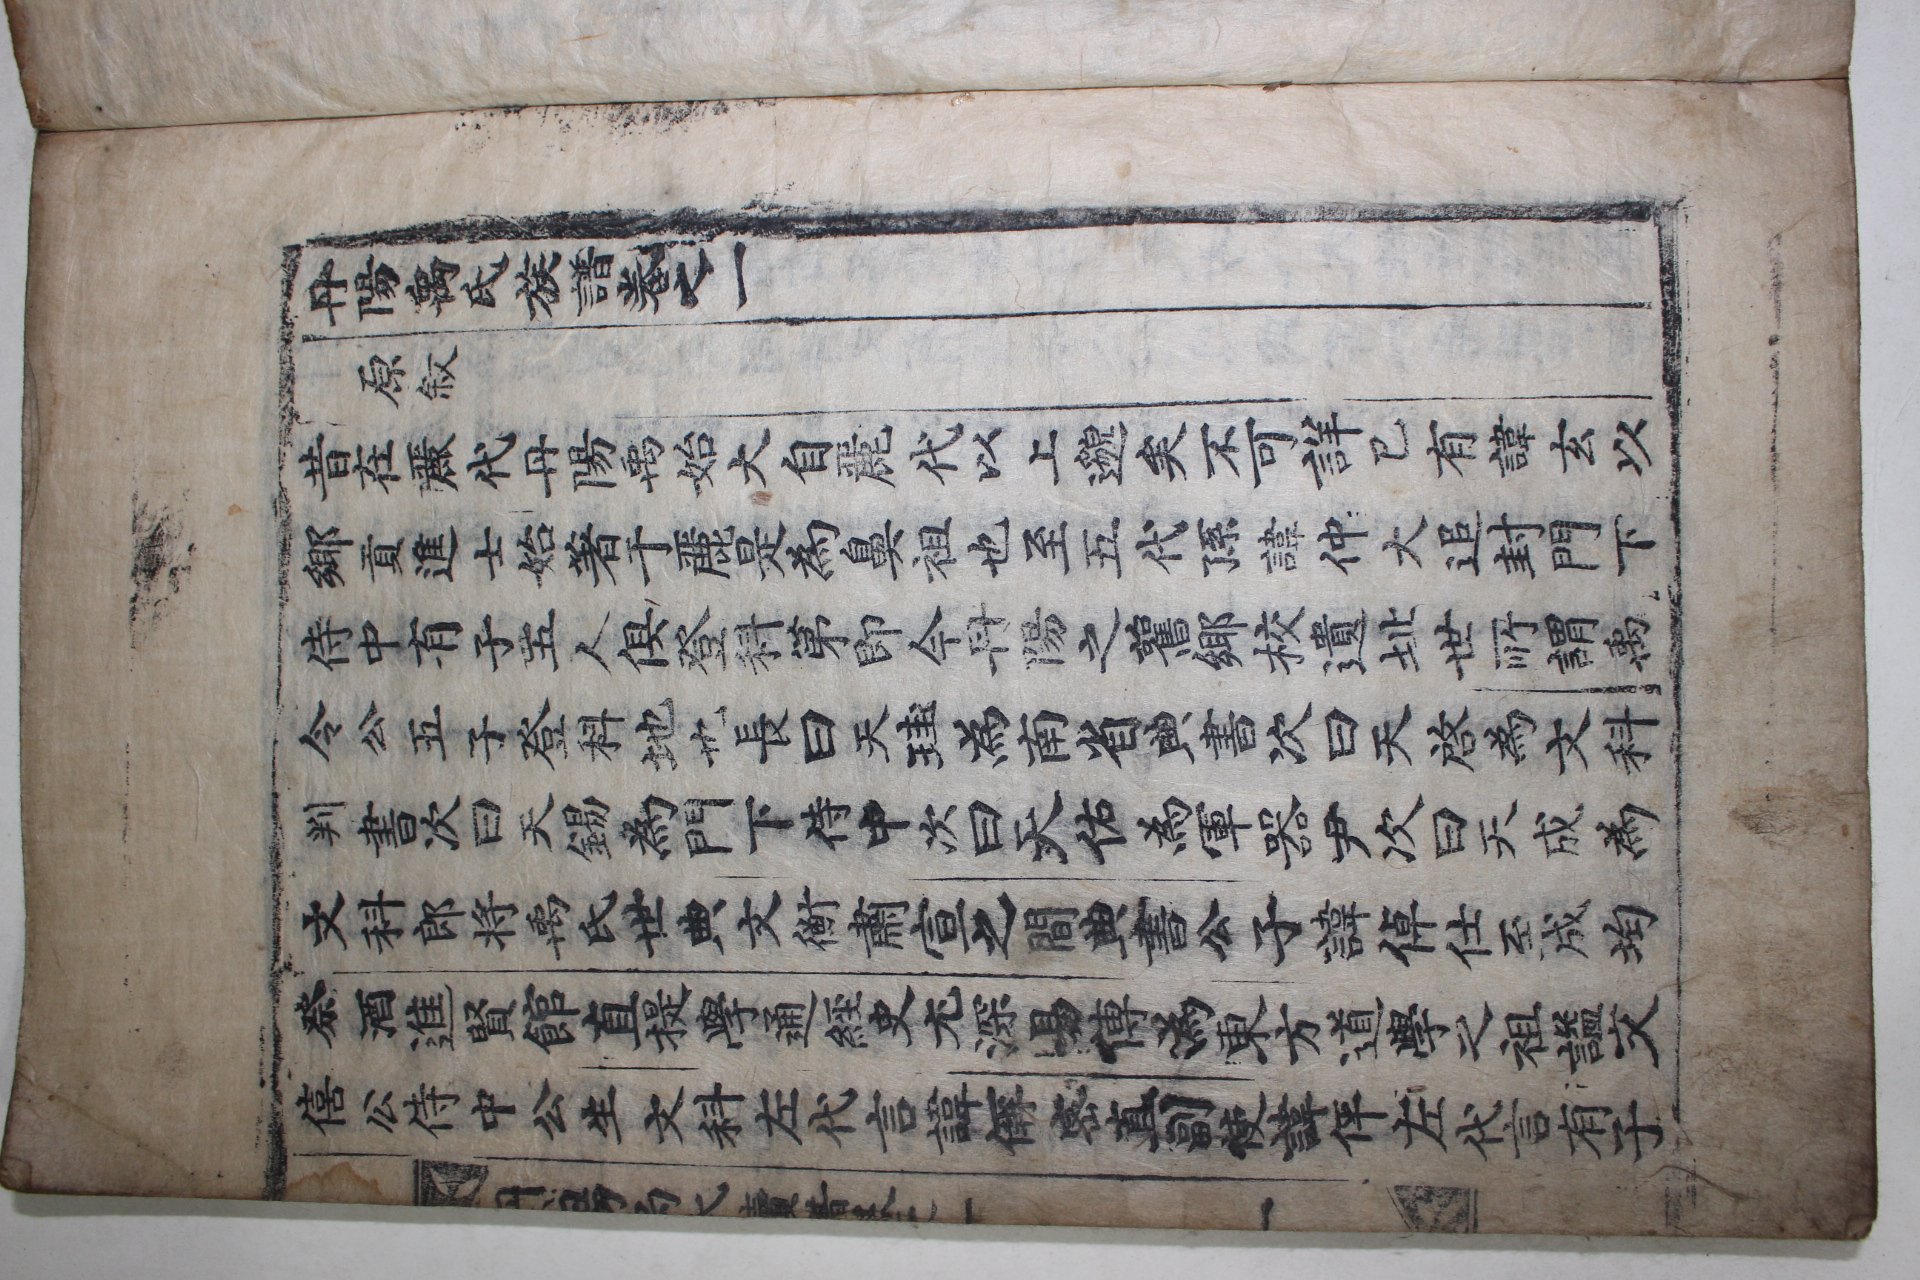 丹陽禹氏族譜卷之一
原敘
昔在麗代丹陽禹始大自麗代以上邈矣不可詳已有諱玄以
鄉貢進士始著于麗是為鼻祖也至五代孫諱仲大追封門下
侍中有子五人俱登科第即今丹陽之舊鄉校遺址世所謂禹
令公五子登科地也長曰天珪為南省典書次曰天啓為文科
判書次曰天錫為門下侍中次曰天佑為軍器尹次曰天成為
文科郎將禹氏世典文衡肅宣之間典書公子諱倬仕至成均
祭酒進賢館直提學通經史尤深易傳為東方道學之祖諡文
僖公侍中公生文科左代言諱 密直副使諱伻左代言有子
丹陽禹氏 譜卷之一
一